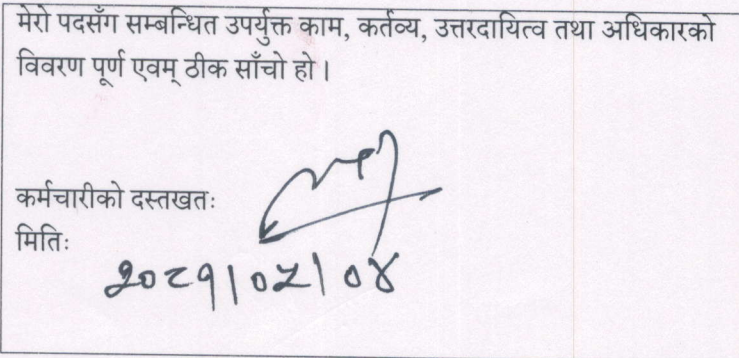 मेरो पदसँग सम्बन्धित उपर्युक्त काम, कर्तव्य, उत्तरदायित्व तथा अधिकारको
विवरण पूर्ण एवम् ठीक साँचो हो ।
कर्मचारीको दस्तखतः
मितिः
२०८१|०५|०४